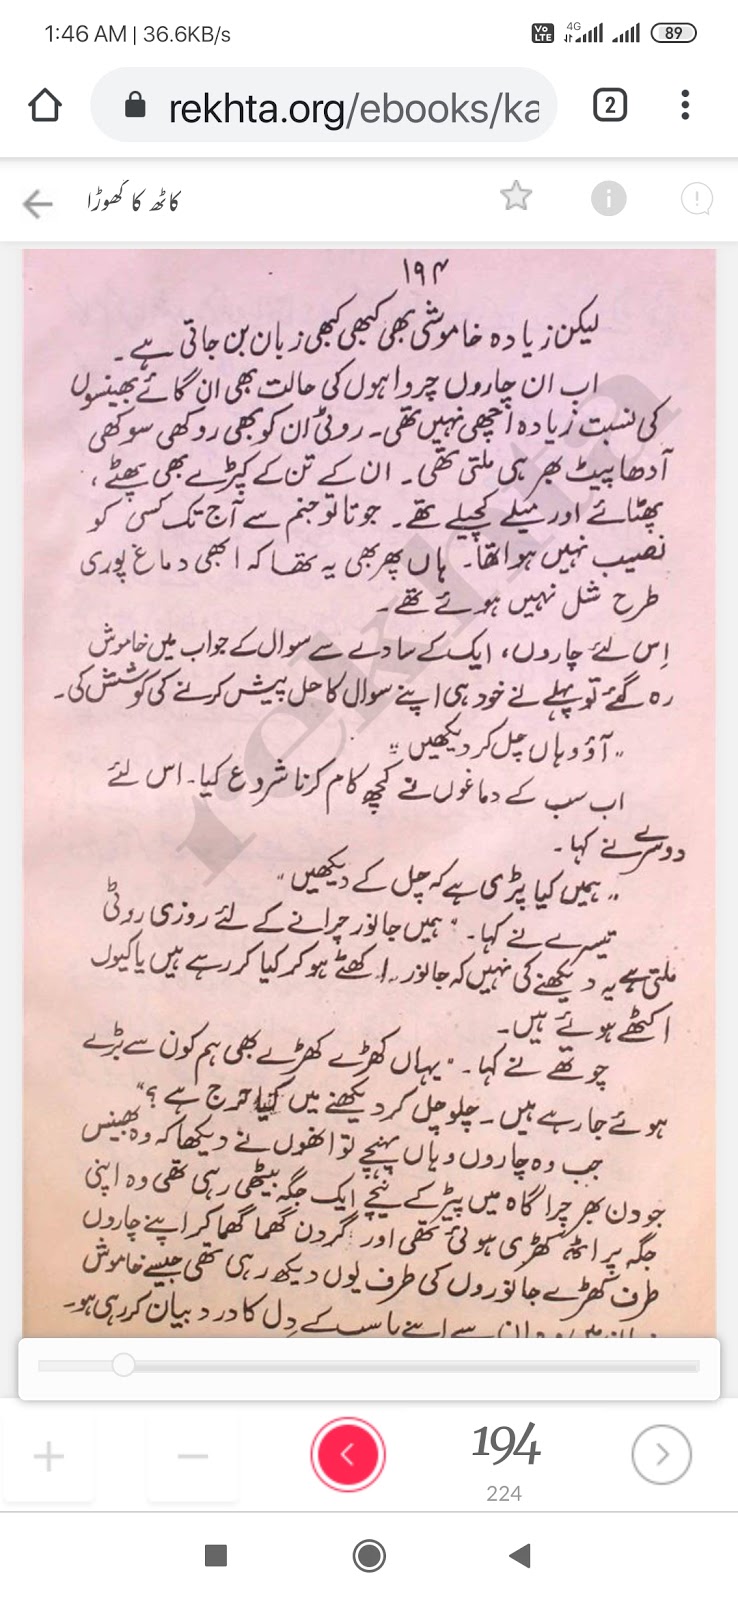 1:46 AM | 36.6KB/s
Vo LTE 4G 89
rekhta.org/ebooks/ka
2
کاٹھ کا گھوڑا
۱۹۴
لیکن زیادہ خاموشی بھی کبھی کبھی زبان بن جاتی ہے۔
اب ان چاروں چرواہوں کی حالت بھی ان گائے بھینسوں
کی نسبت زیادہ اچھی نہیں تھی۔ روٹی ان کو بھی روکھی سوکھی
آدھا پیٹ بھر ہی ملتی تھی۔ ان کے تن کے کپڑے بھی پھٹے،
پھٹائے اور میلے کچیلے تھے۔ جوتا تو جنم سے آج تک کسی کو
نصیب نہیں ہوا تھا۔ ہاں پھر بھی یہ تھا کہ ابھی دماغ پوری
طرح شل نہیں ہوئے تھے۔
اِس لئے چاروں، ایک کے سادے سے سوال کے جواب میں خاموش
رہ گئے تو پہلے نے خود ہی اپنے سوال کا حل پیش کرنے کی کوشش کی۔
"آؤ وہاں چل کر دیکھیں"
اب سب کے دماغوں نے کچھ کام کرنا شروع کیا۔ اس لئے
دوسرے نے کہا۔
"ہمیں کیا پڑی ہے کہ چل کے دیکھیں"
تیسرے نے کہا۔ "ہمیں جانور چرانے کے لئے روزی روٹی
ملتی ہے یہ دیکھنے کی نہیں کہ جانور اکھٹے ہو کر کیا کر رہے ہیں یا کیوں
اکٹھے ہوئے ہیں۔
چوتھے نے کہا۔ "یہاں کھڑے کھڑے بھی ہم کون سے بڑے
ہوئے جا رہے ہیں۔ چلو چل کر دیکھنے میں کیا حرج ہے؟"
جب وہ چاروں وہاں پہنچے تو انھوں نے دیکھا کہ وہ بھینس
جو دن بھر چرا گاہ میں پیڑ کے نیچے ایک جگہ بیٹھی رہی تھی وہ اپنی
جگہ پر اٹھ کھڑی ہوئی تھی اور گردن گھما گھما کر اپنے چاروں
طرف کھڑے جانوروں کی طرف یوں دیکھ رہی تھی جیسے خاموش
زبان میں وہ ان سے اپنے پاسب کے دِل کا درد بیان کر رہی ہو۔
rekhta
194
224